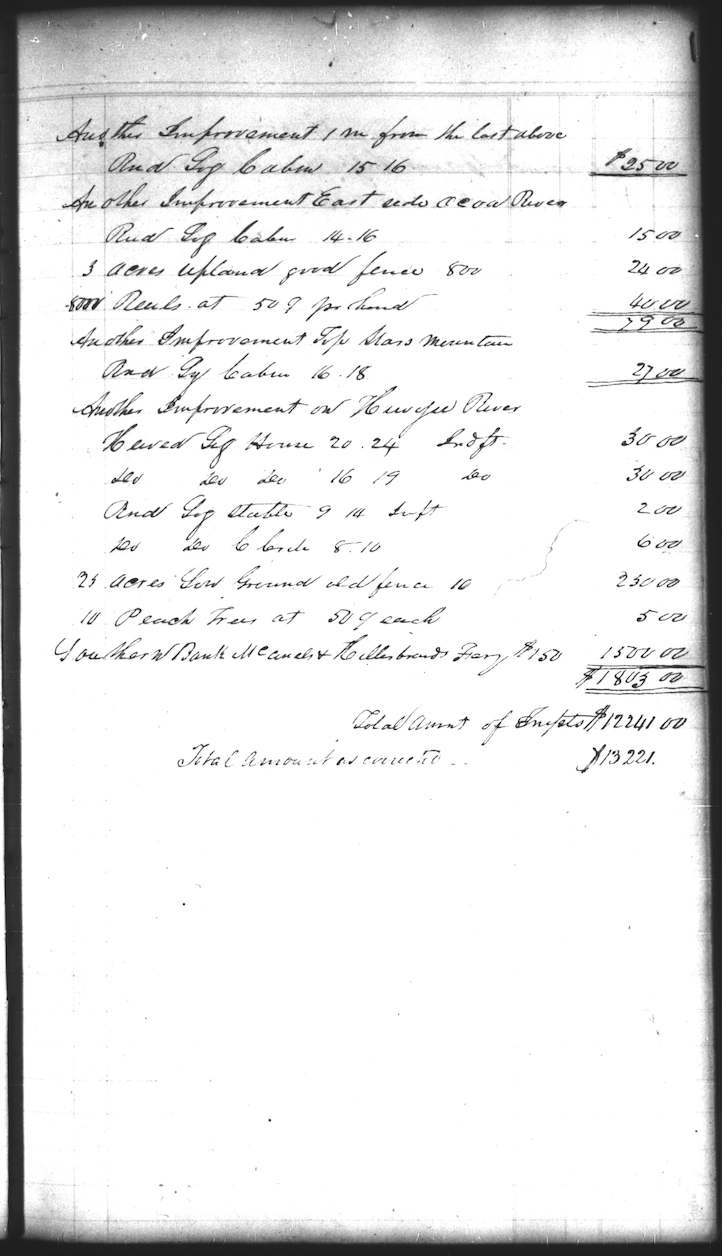 Another Improvement 1 m from the last above
Rnd Log Cabin 15 16 $25 00
Another Improvement East side Acoa River
Rnd Log Cabin 14.16 15 00
3 Acres Upland good fence 800 24 00
8000 Reuls at 50 ¢ pr hund 40 00
79 00
Another Improvement Top Stars Mountain
Rnd Log Cabin 16.18 27 00
Another Improvement on River
Hewed Log House 20.24 30 00
Do Do Do 16 19 Do 30 00
Rnd Log Stable 9 14 2 00
Do Do C Crib 8.10 6 00
23 Acres Low Ground old fence 10 230 00
10 Peach Trees at 50 ¢ each 5 00
Southern Bank McCanels & Hillesbrands Fery $150 1500 00
$1803 00
Total Amnt of Impts $12241 00
Total Amount as corrected $13221.